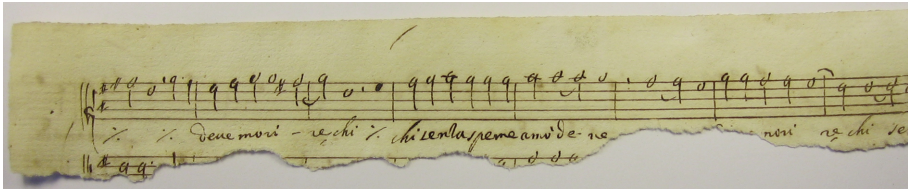 ·/. ·/. deve mori - re chi ·/. chi senza speme amò de - ve mori re chi se